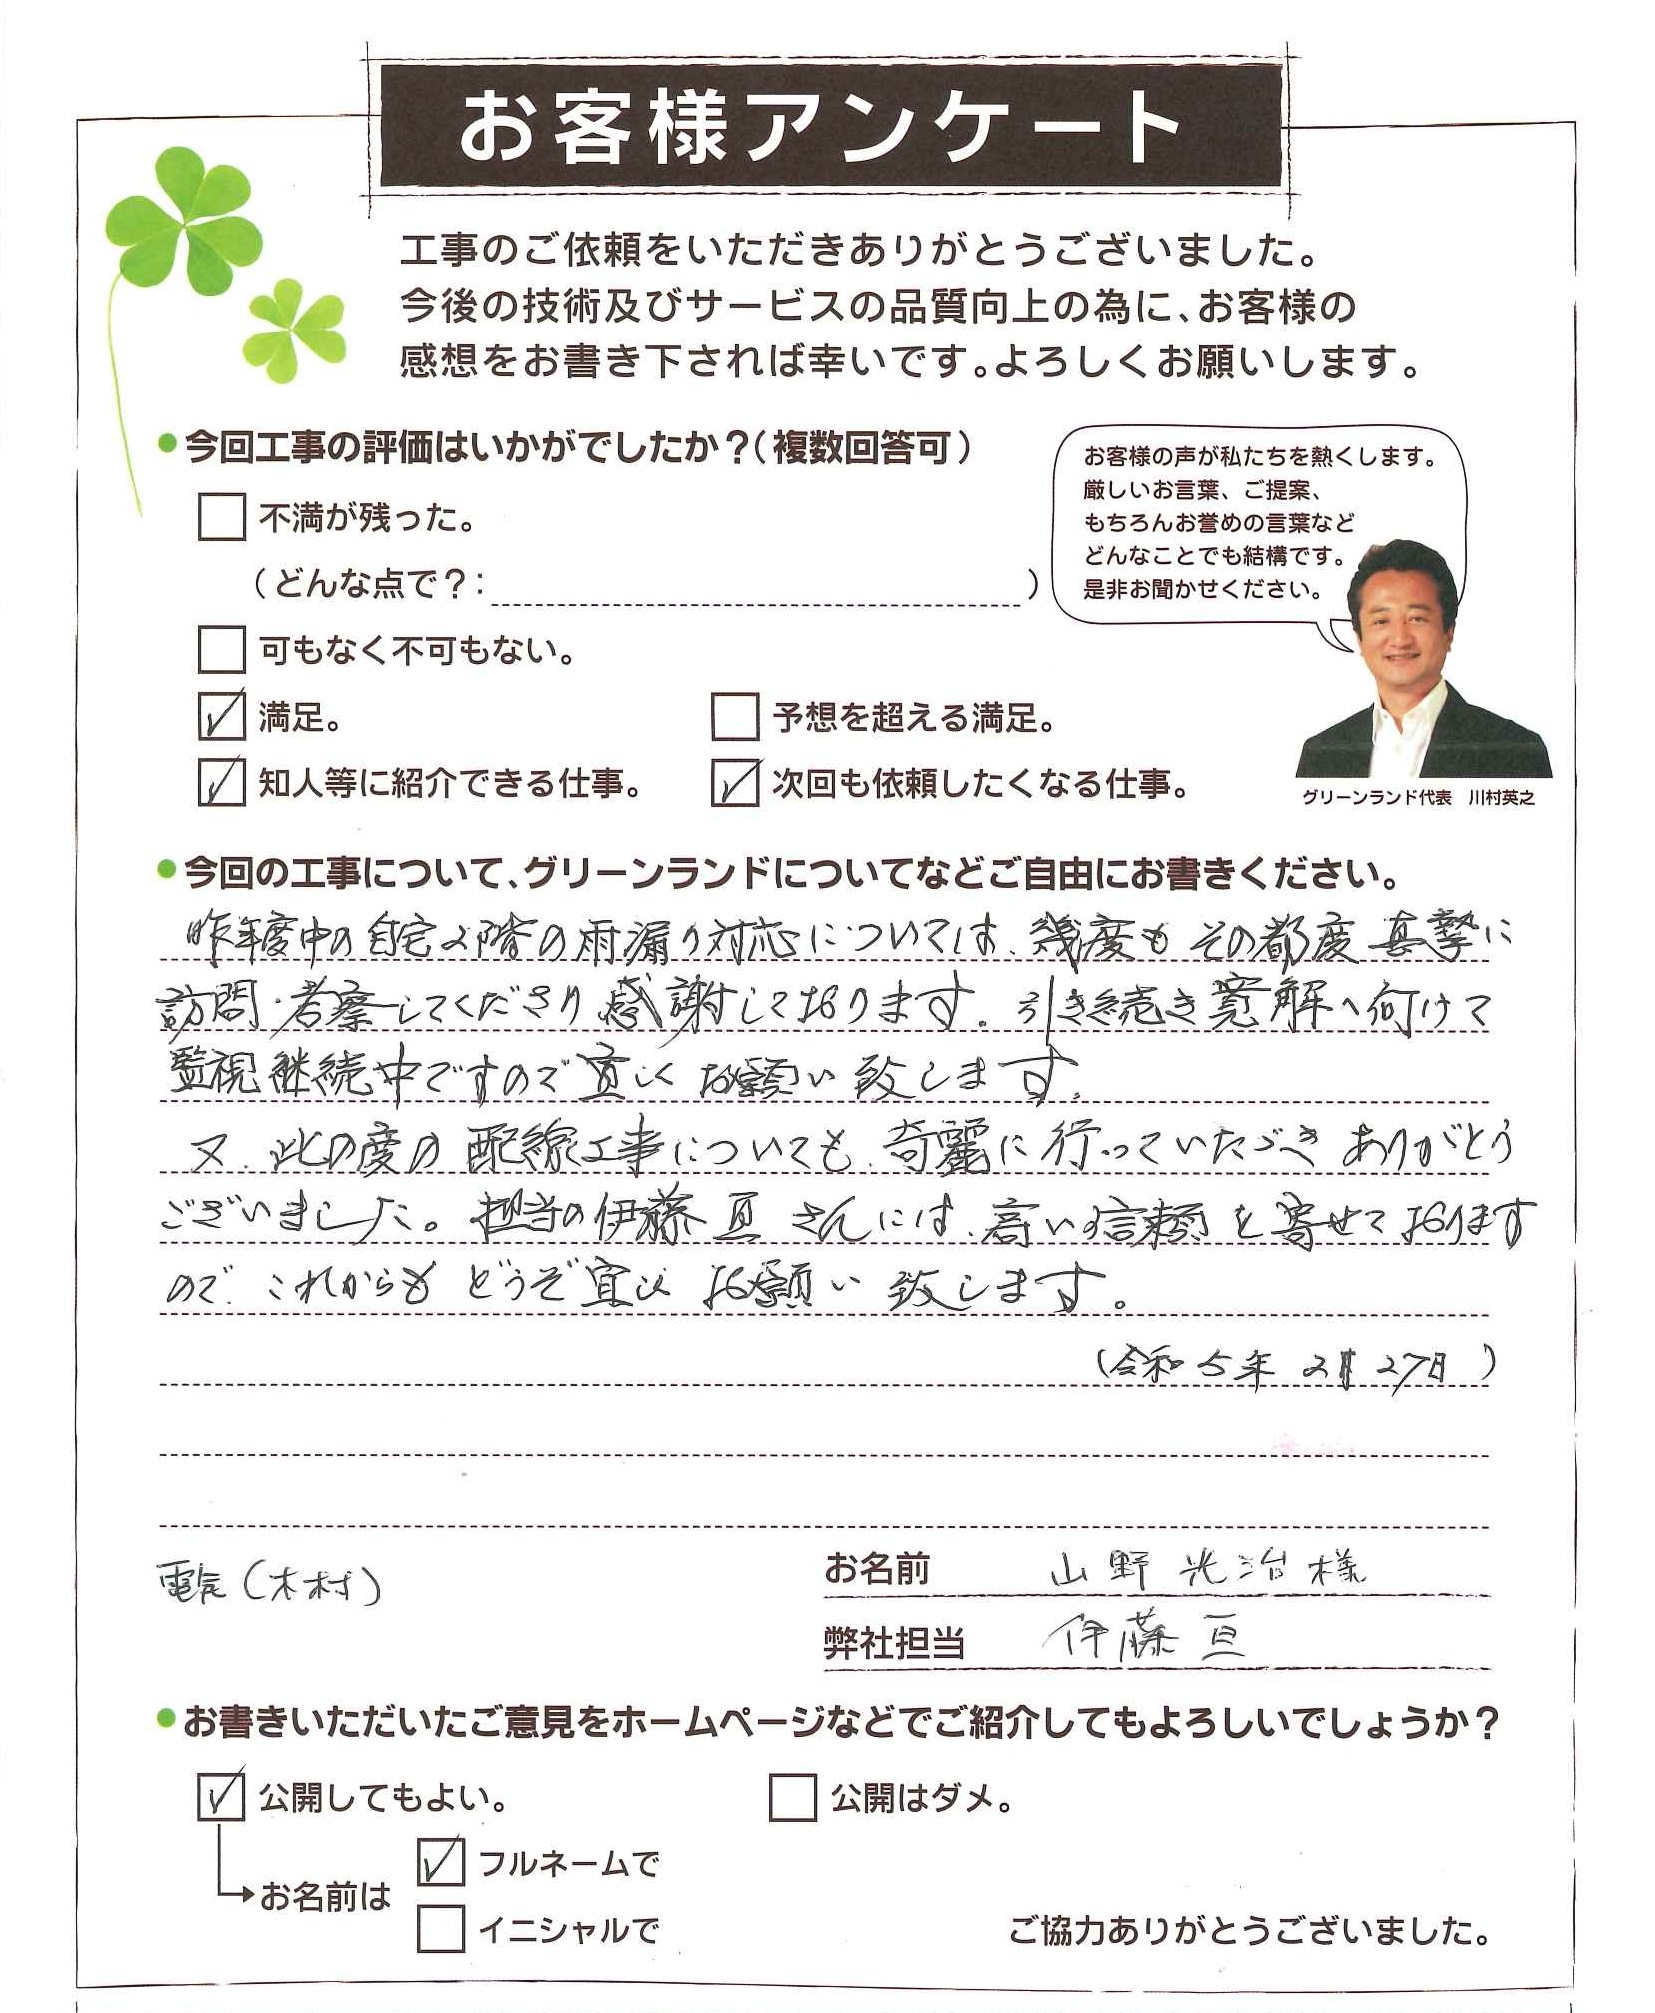 お客様アンケート
工事のご依頼をいただきありがとうございました。
今後の技術及びサービスの品質向上の為に、お客様の
感想をお書き下されば幸いです。よろしくお願いします。
●今回工事の評価はいかがでしたか？（複数回答可）
不満が残った。
（どんな点で？：　）
可もなく不可もない。
満足。
予想を超える満足。
知人等に紹介できる仕事。
次回も依頼したくなる仕事。
お客様の声が私たちを熱くします。
厳しいお言葉、ご提案、
もちろんお誉めの言葉など
どんなことでも結構です。
是非お聞かせください。
グリーンランド代表　川村英之
●今回の工事について、グリーンランドについてなどご自由にお書きください。
昨年度中の自宅2階の雨漏り対応については、幾度もその都度真摯に
訪問・考察してくださり感謝しております。引き続き寛解へ向けて
監視継続中ですので宜しくお願い致します。
又、此の度の配線工事についても、奇麗に行っていただき ありがとう
ございました。担当の伊藤亘さんには、高い信頼を寄せております
ので、これからもどうぞ宜しくお願い致します。
（令和5年2月27日）
電気（木村）
お名前　山野光治様
弊社担当　伊藤亘
●お書きいただいたご意見をホームページなどでご紹介してもよろしいでしょうか？
公開してもよい。
公開はダメ。
お名前は
フルネームで
イニシャルで
ご協力ありがとうございました。